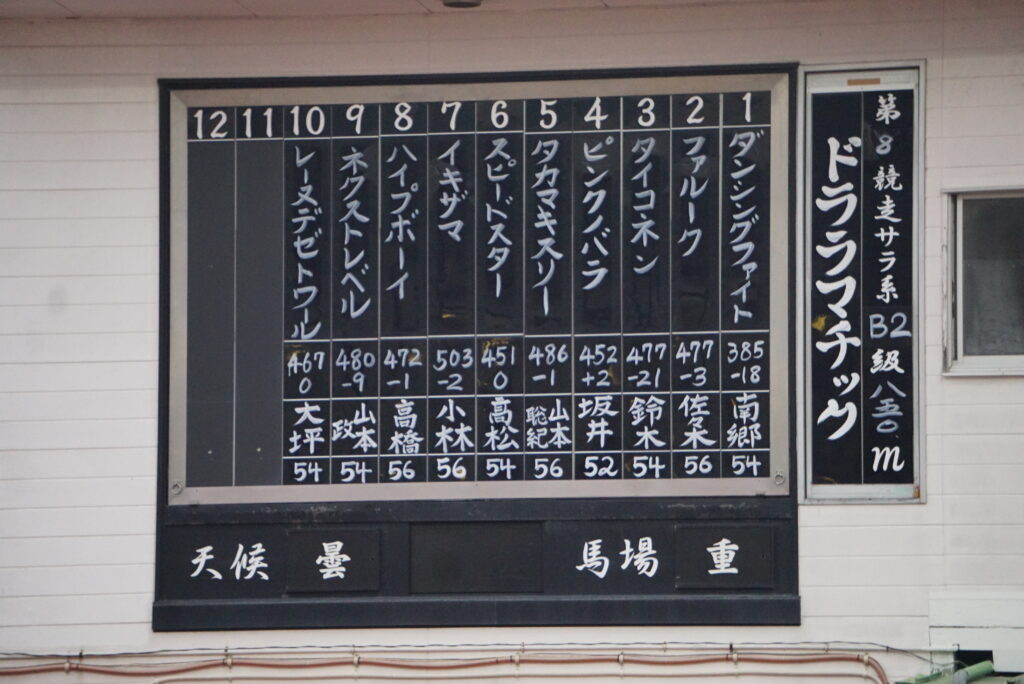 第8競走サラ系B2級八五〇m
ドラマチック
1
ダンシングファイト
385
-18
南郷
54
2
ファルーク
477
-3
佐々木
56
3
タイコネン
477
-21
鈴木
54
4
ピンクノバラ
452
+2
坂井
52
5
タカマキスリー
486
-1
山本聡紀
56
6
スピードスター
451
0
高松
54
7
イキザマ
503
-2
小林
56
8
ハイプボーイ
472
-1
高橋
56
9
ネクストレベル
480
-9
山本政
54
10
レーヌデゼトワール
467
0
大坪
54
11
12
天候 曇
馬場 重